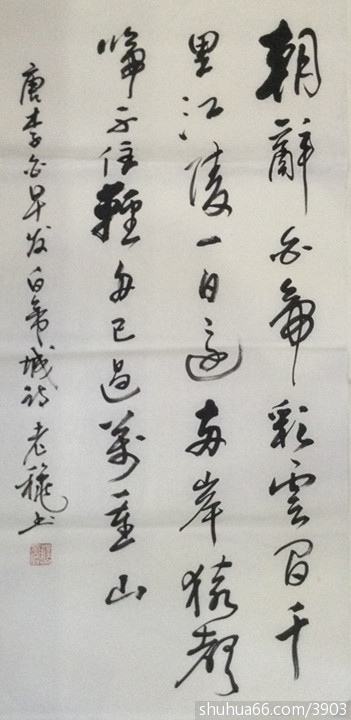 朝辭白帝彩雲間千
里江陵一日還两岸猿聲
啼不住輕舟已過萬重山
唐李白早发白帝城诗 老穆书
shuhua66.com/3903